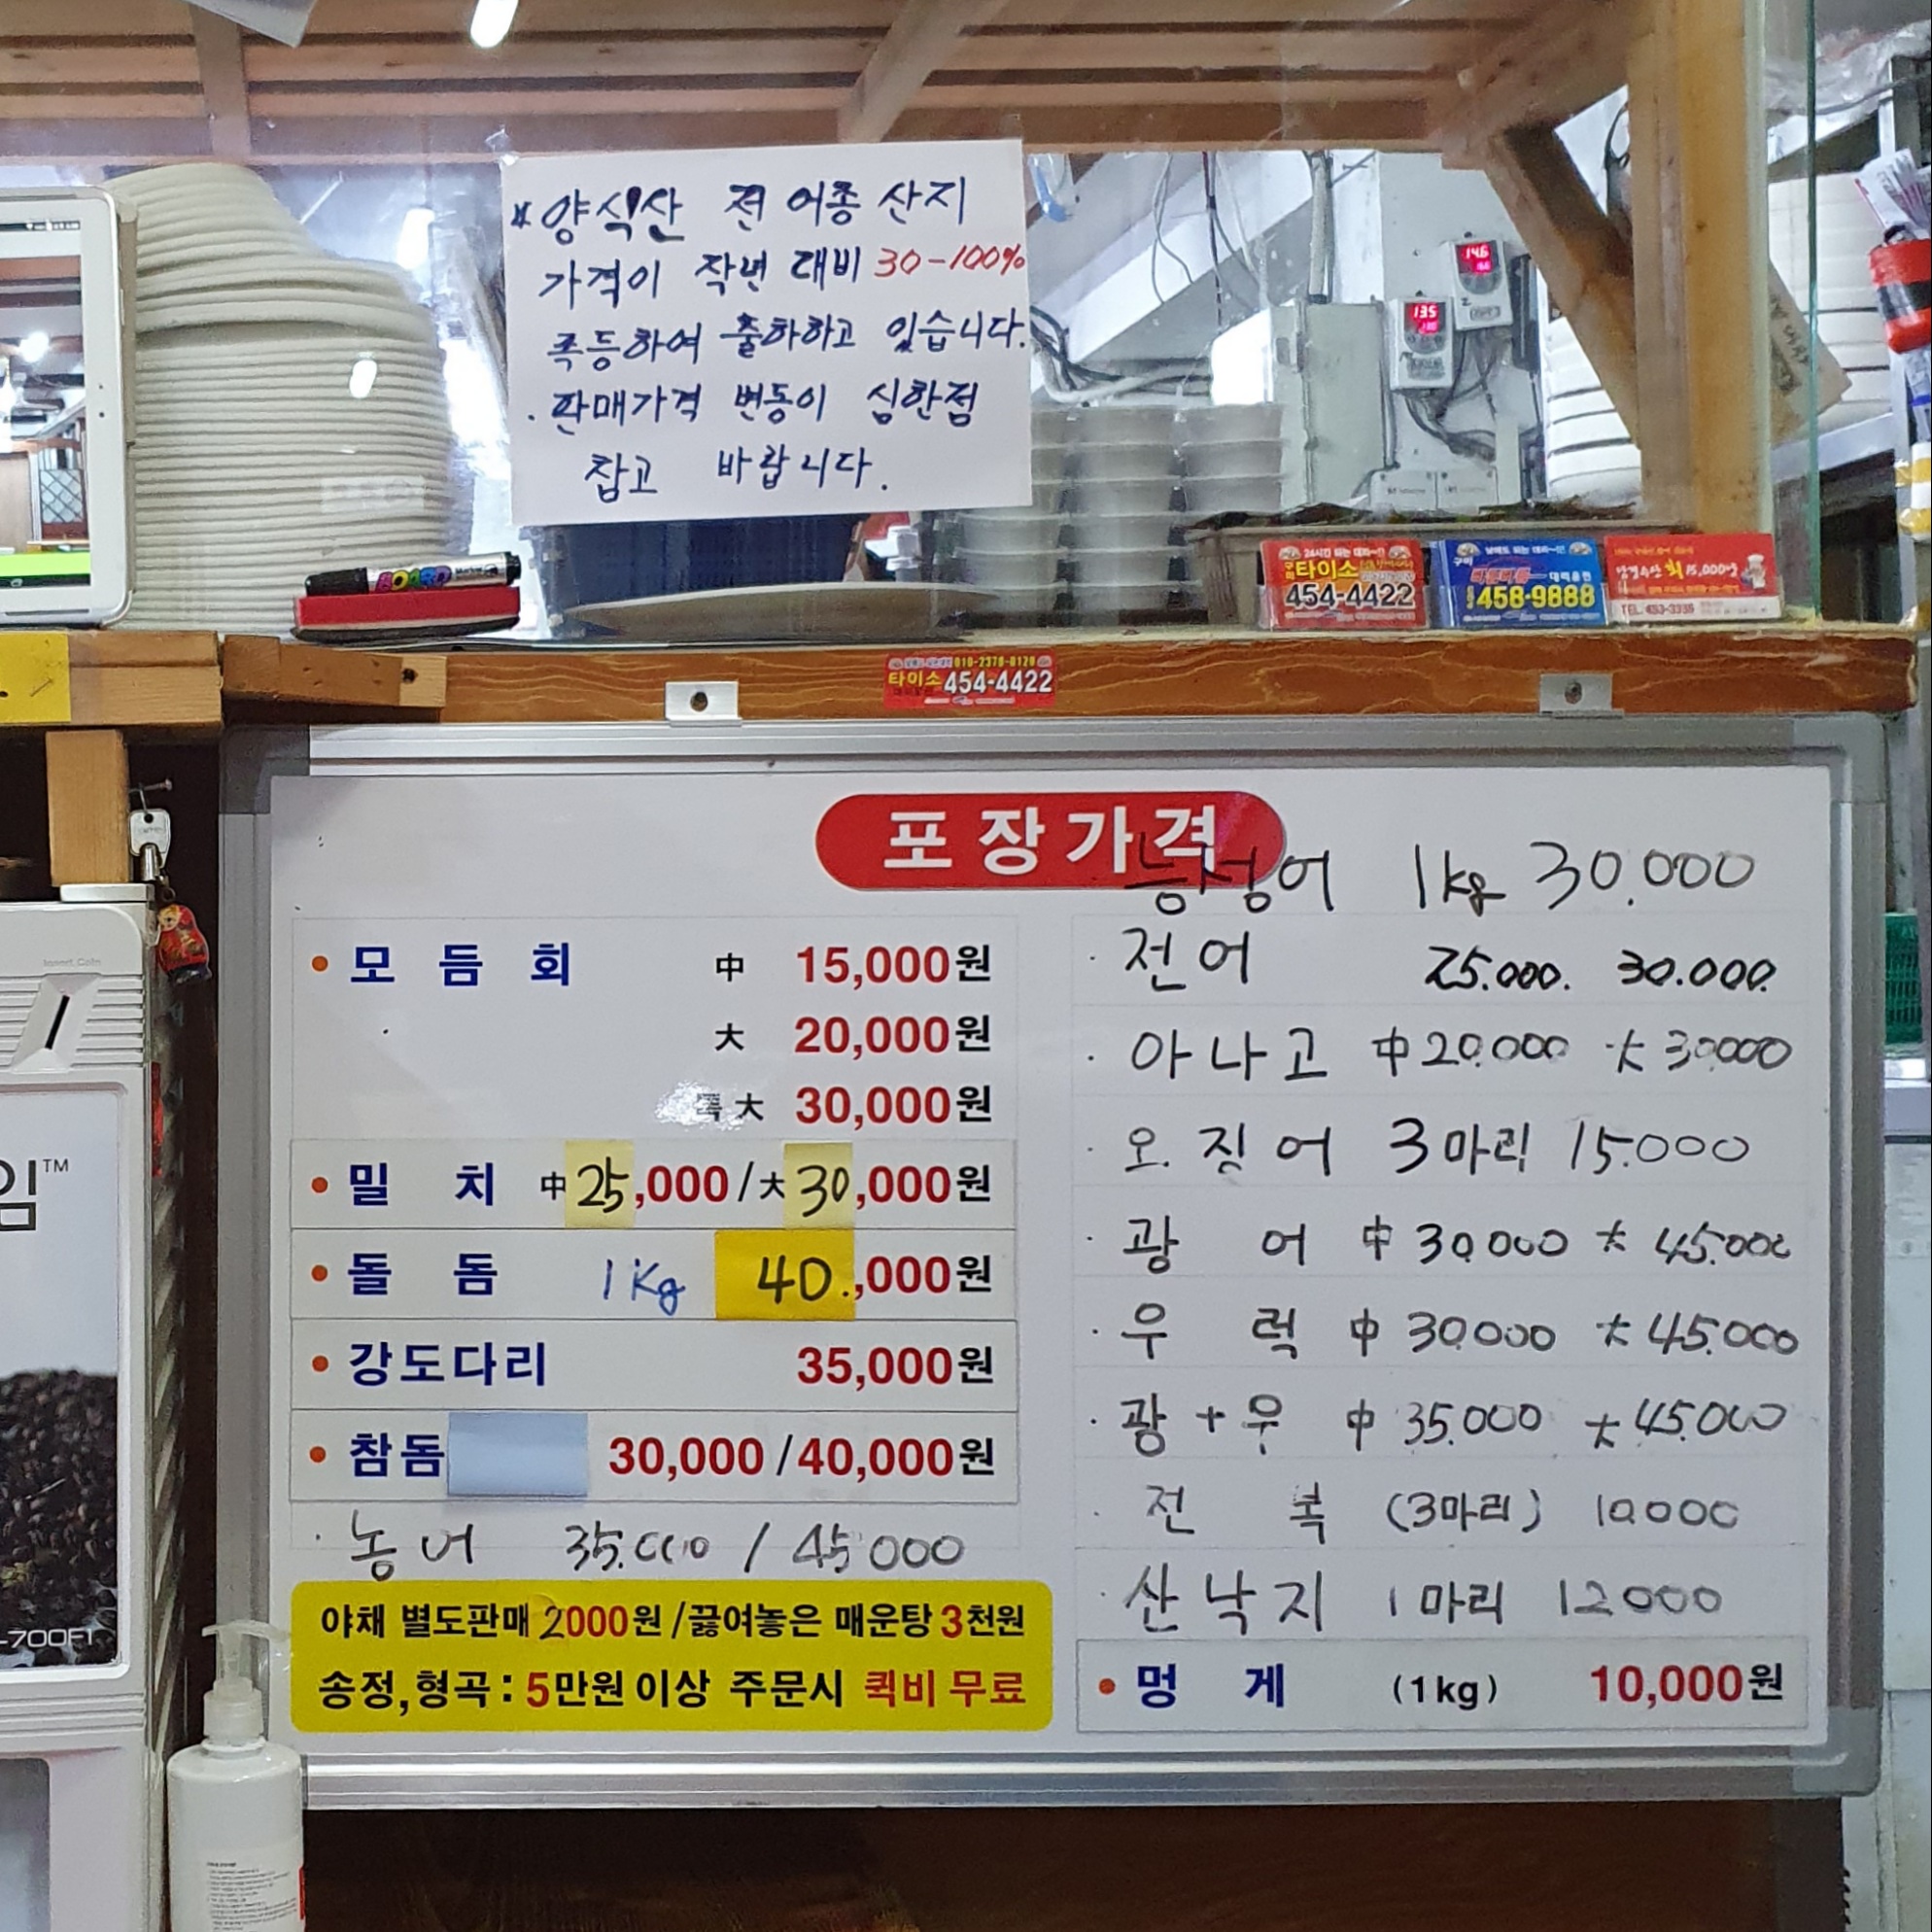 *양식산 전 어종 산지
가격이 작년 대비 30-100%
폭등하여 출하하고 있습니다.
. 판매가격 변동이 심한점
참고 바랍니다.
14.6
135
BOARD
24시간 되는 대리~!!
구미 타이소
454-4422
구미
458-9888
회 15,000냥
TEL. 453-3335
타이소 454-4422
포장가격
능성어 1kg 30.000
• 모듬회 中 15,000원
大 20,000원
특大 30,000원
• 밀치 中25,000/大30,000원
• 돌돔 1Kg 40.,000원
• 강도다리 35,000원
• 참돔 30,000/40,000원
· 농어 35.000 / 45000
야채 별도판매 2000원/끓여놓은 매운탕 3천원
송정,형곡: 5만원 이상 주문시 퀵비 무료
· 전어 25.000. 30.000.
· 아나고 中20.000 大30000
· 오징어 3마리 15.000
· 광어 中 30.000 大 45.000
· 우럭 中 30.000 大45.000
· 광+우 中 35.000 大45.000
· 전복 (3마리) 10.000
· 산낙지 1마리 12000
• 멍게 (1kg) 10,000원
Insert Coin
임™
-700FT